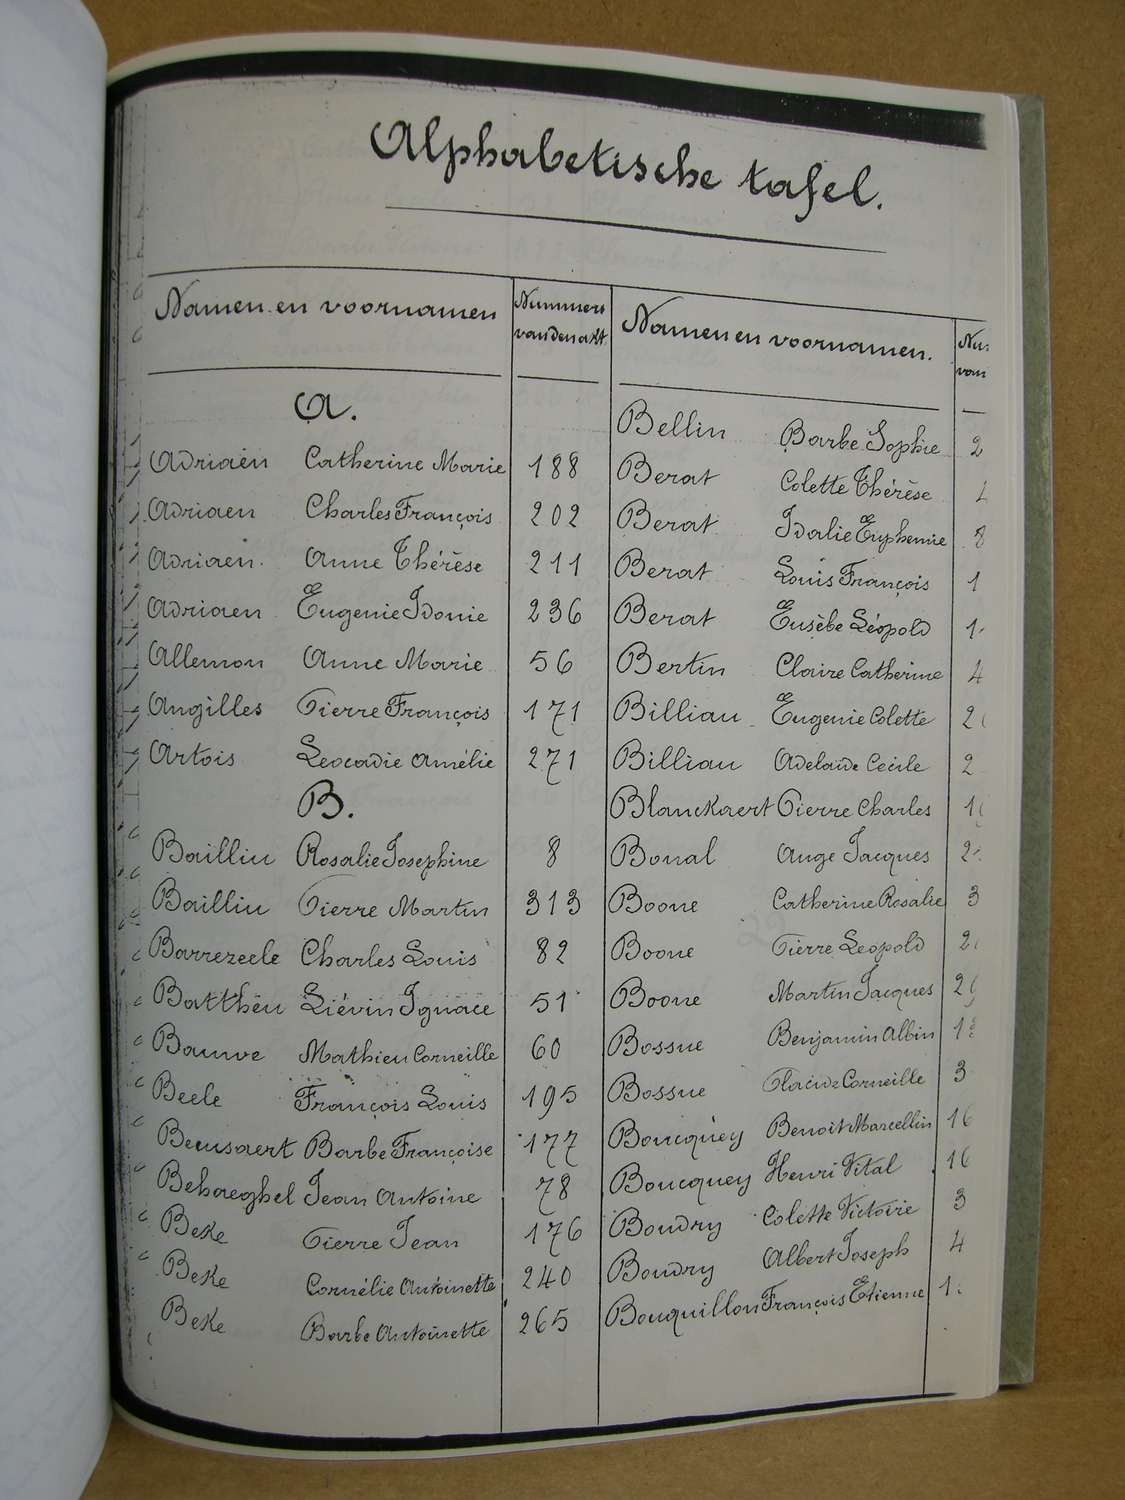 Alphabetische tafel.
Namen en voornamen
Nummers
van den akt.
A.
Adriaen Catherine Marie 188
Adriaen Charles François 202
Adriaen Anne Thérèse 211
Adriaen Eugenie Idonie 236
Allemon Anne Marie 56
Angilles Pierre François 171
Artois Leocadie Amélie 271
B.
Bailliu Rosalie Josephine 8
Bailliu Pierre Martin 313
Barrezeele Charles Louis 82
Battheu Liévin Ignace 51
Bauwe Mathieu Corneille 60
Beele François Louis 195
Beeusaert Barbe Françoise 177
Behaeghel Jean Antoine 78
Beke Pierre Jean 176
Beke Cornélie Antoinette 240
Beke Barbe Antoinette 265
Namen en voornamen.
Bellin Barbe Sophie 2
Berat Colette Thérèse
Berat Idalie Euphemie 8
Berat Louis François 1
Berat Eusèbe Léopold 1
Bertin Claire Catherine 4
Billiau Eugenie Colette 2
Billiau Adelaïde Cecile 2
Blanckaert Pierre Charles 1
Bonal Ange Jacques 2
Boone Catherine Rosalie 3
Boone Pierre Leopold 2
Boone Martin Jacques 2
Bossue Benjamin Albin 1
Bossue Placide Corneille 3
Boucquey Benoit Marcellin 16
Boucquey Henri Vital 16
Boudry Colette Victorie 3
Boudry Albert Joseph 4
Bouquillon François Etienne 1